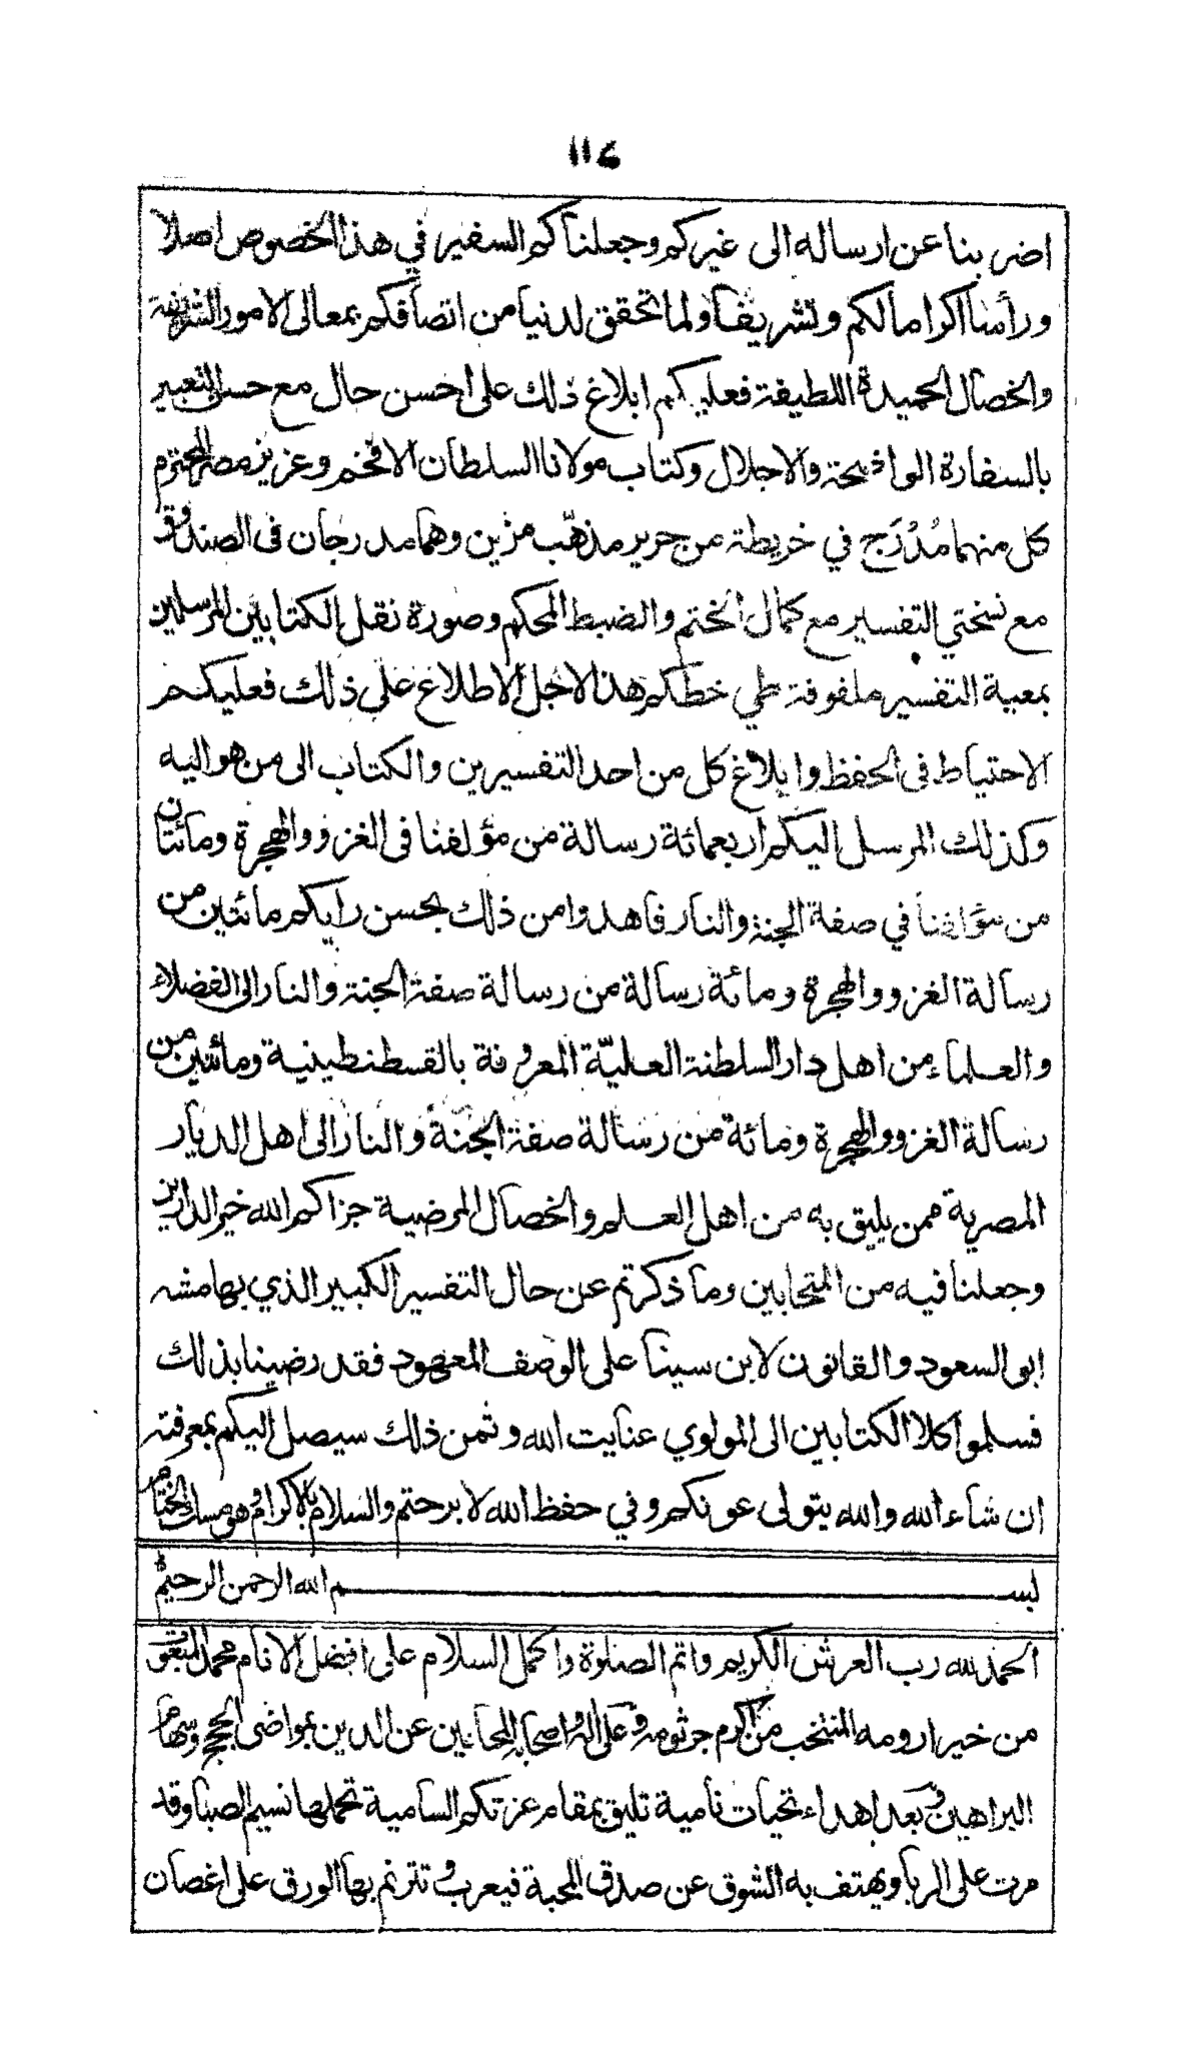 ١١٦
اضربنا عن ارساله الى غيركم وجعلناكم السفير في هذا الخصوص اصلا
ورأسا اكراما لكم وتشريفا ولما تحقق لدنيا من اتصافكم بمعالى الامور الشريفة
والخصال الحميدة اللطيفة فعليكم ابلاغ ذلك على احسن حال مع حسن التعبير
بالسفارة الواضحة والاجلال وكتاب مولانا السلطان الافخم وعزيز مصر المحترم
كل منهما مُدْرَج في خريطة من حرير مذهّب مزين وهما مدرجان فى الصندوق
مع نسختي التفسير مع كمال الختم والضبط المحكم وصورة نقل الكتابين المرسلين
بمعية التفسير ملفوفة طي خطكم هذا لاجل الاطلاع على ذلك فعليكم
الاحتياط فى الحفظ وابلاغ كل من احد التفسيرين والكتاب الى من هو اليه
وكذلك المرسل اليكم اربعمائة رسالة من مؤلفنا فى الغزو والهجرة ومائتان
من مؤلفنا في صفة الجنة والنار فاهدوا من ذلك بحسن رايكم مائتين من
رسالة الغزو والهجرة ومائة رسالة من رسالة صفة الجنة والنار الى الفضلاء
والعلماء من اهل دار السلطنة العليّة المعروفة بالقسطنطينية ومائتين من
رسالة الغزو والهجرة ومائة من رسالة صفة الجنة والنار الى اهل الديار
المصرية ممن يليق به من اهل العلم والخصال المرضية جزاكم الله خير الدارين
وجعلنا فيه من المتحابين وما ذكرتم عن حال التفسير الكبير الذي بهامشه
ابو السعود والقانون لابن سينا على الوصف المعهود فقد رضينا بذلك
فسلموا كلا الكتابين الى المولوي عنايت الله وثمن ذلك سيصل اليكم بمعرفته
ان شاء الله والله يتولى عونكم وفي حفظ الله لا برحتم والسلام بالاكرام وهو مسك الختام
بسم الله الرحمن الرحيم
الحمد لله رب العرش الكريم واتم الصلوة واكمل السلام على افضل الانام محمد المنتقى
من خير ارومه المنتخب من اكرم جرثومه وعلى اله واصحابه المحامين عن الدين بمواضى الحجج وسهام
البراهين وبعد اهداء تحيات نامية تليق بمقام عزتكم السامية تحملها نسيم الصبا وقد
مرت على الربا ويهتف به الشوق عن صدق المحبة فيعرب وتترنم بها الورق على اغصان